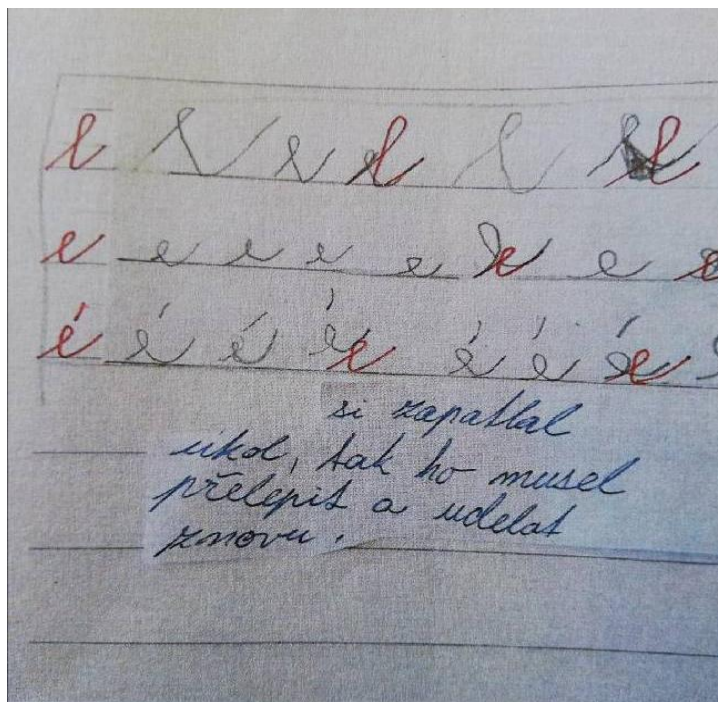 l l l l l l
e e e e e e e e
é é é é e é é é e
si zapatlal
úkol, tak ho musel
přelepit a udelat
znovu.